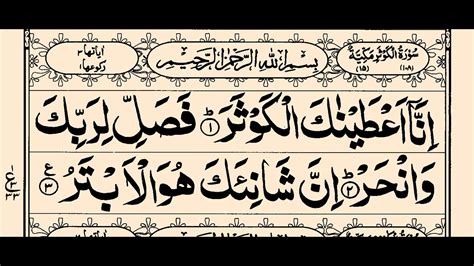 سُوْرَةُ الْكَوْثَرِ مَكِّيَّةٌ
(۱۰۸) (۱۵)
بِسْمِ اللّٰهِ الرَّحْمٰنِ الرَّحِيْمِ
اٰيَاتُهَا ۳
رُكُوْعُهَا ۱
اِنَّاۤ اَعْطَيْنٰكَ الْكَوْثَرَ ؕ۱ فَصَلِّ لِرَبِّكَ
وَانْحَرْ ؕ۲ اِنَّ شَانِئَكَ هُوَ الْاَبْتَرُ ۳ ع